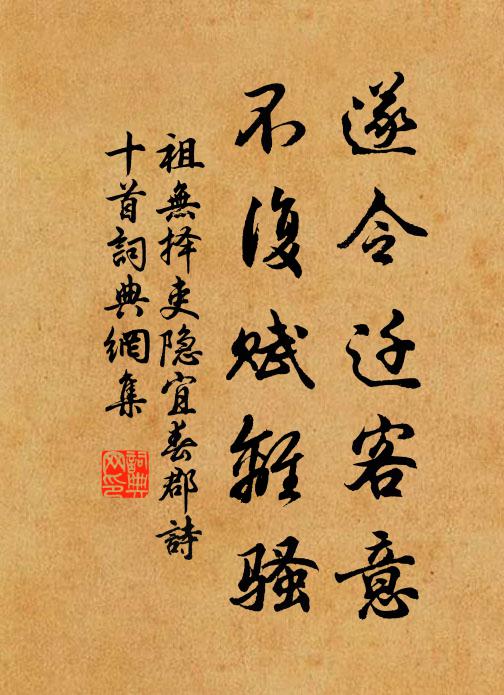 遂令迁客意
不復賦離騷
祖無择吏隐宜春郡詩
十首詞典網集
詞典网印